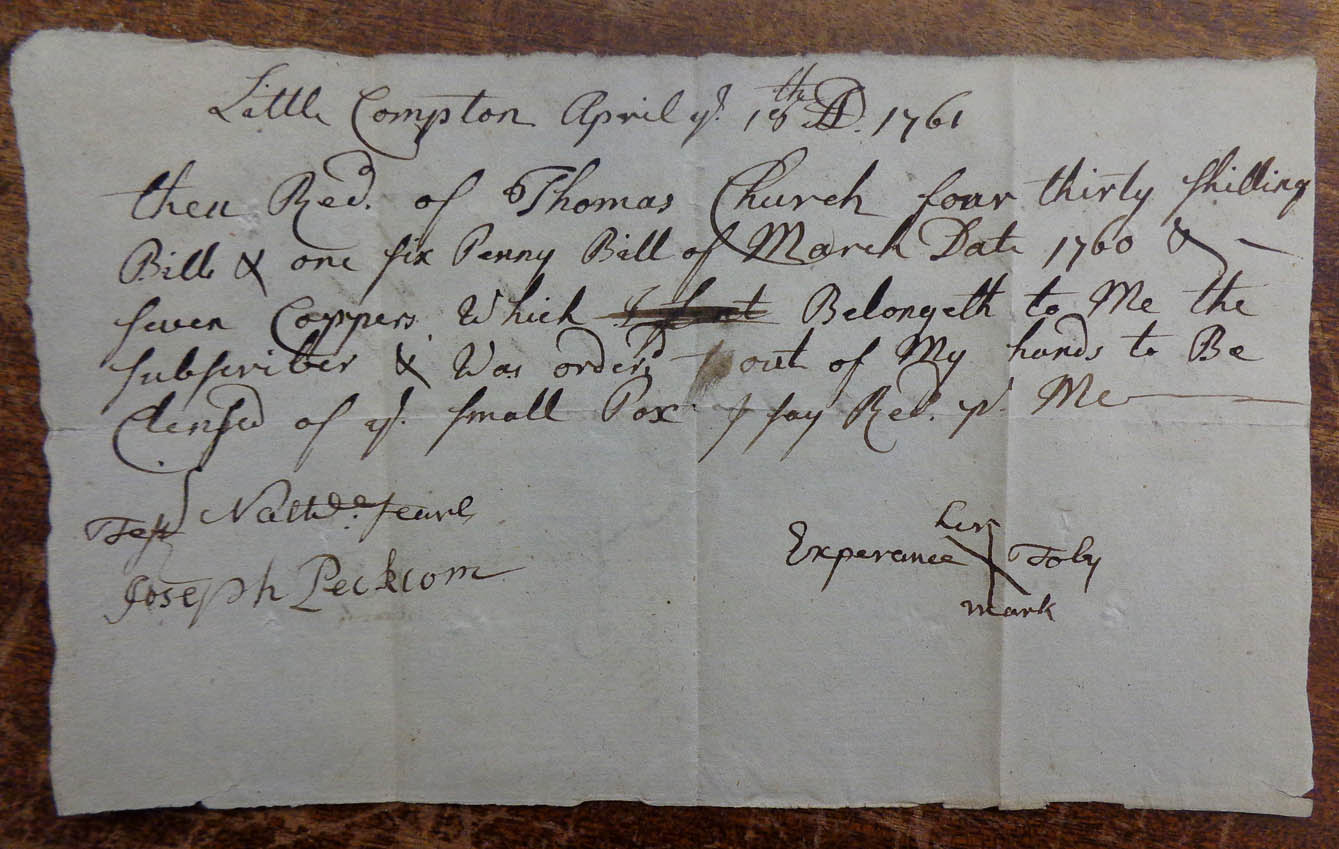 Little Compton April ye. 18th AD. 1761
then Recd. of Thomas Church four thirty shilling
Bills & one six Penny Bill of March Date 1760 & —
seven Coppers Which Belongeth to Me the
subscriber & Was orderd out of My hands to Be
Clensed of ye. small Pox I say Recd. pr. Me —
Test Nathll. Searl
Joseph Peckcom
her
Experance X Toby
mark